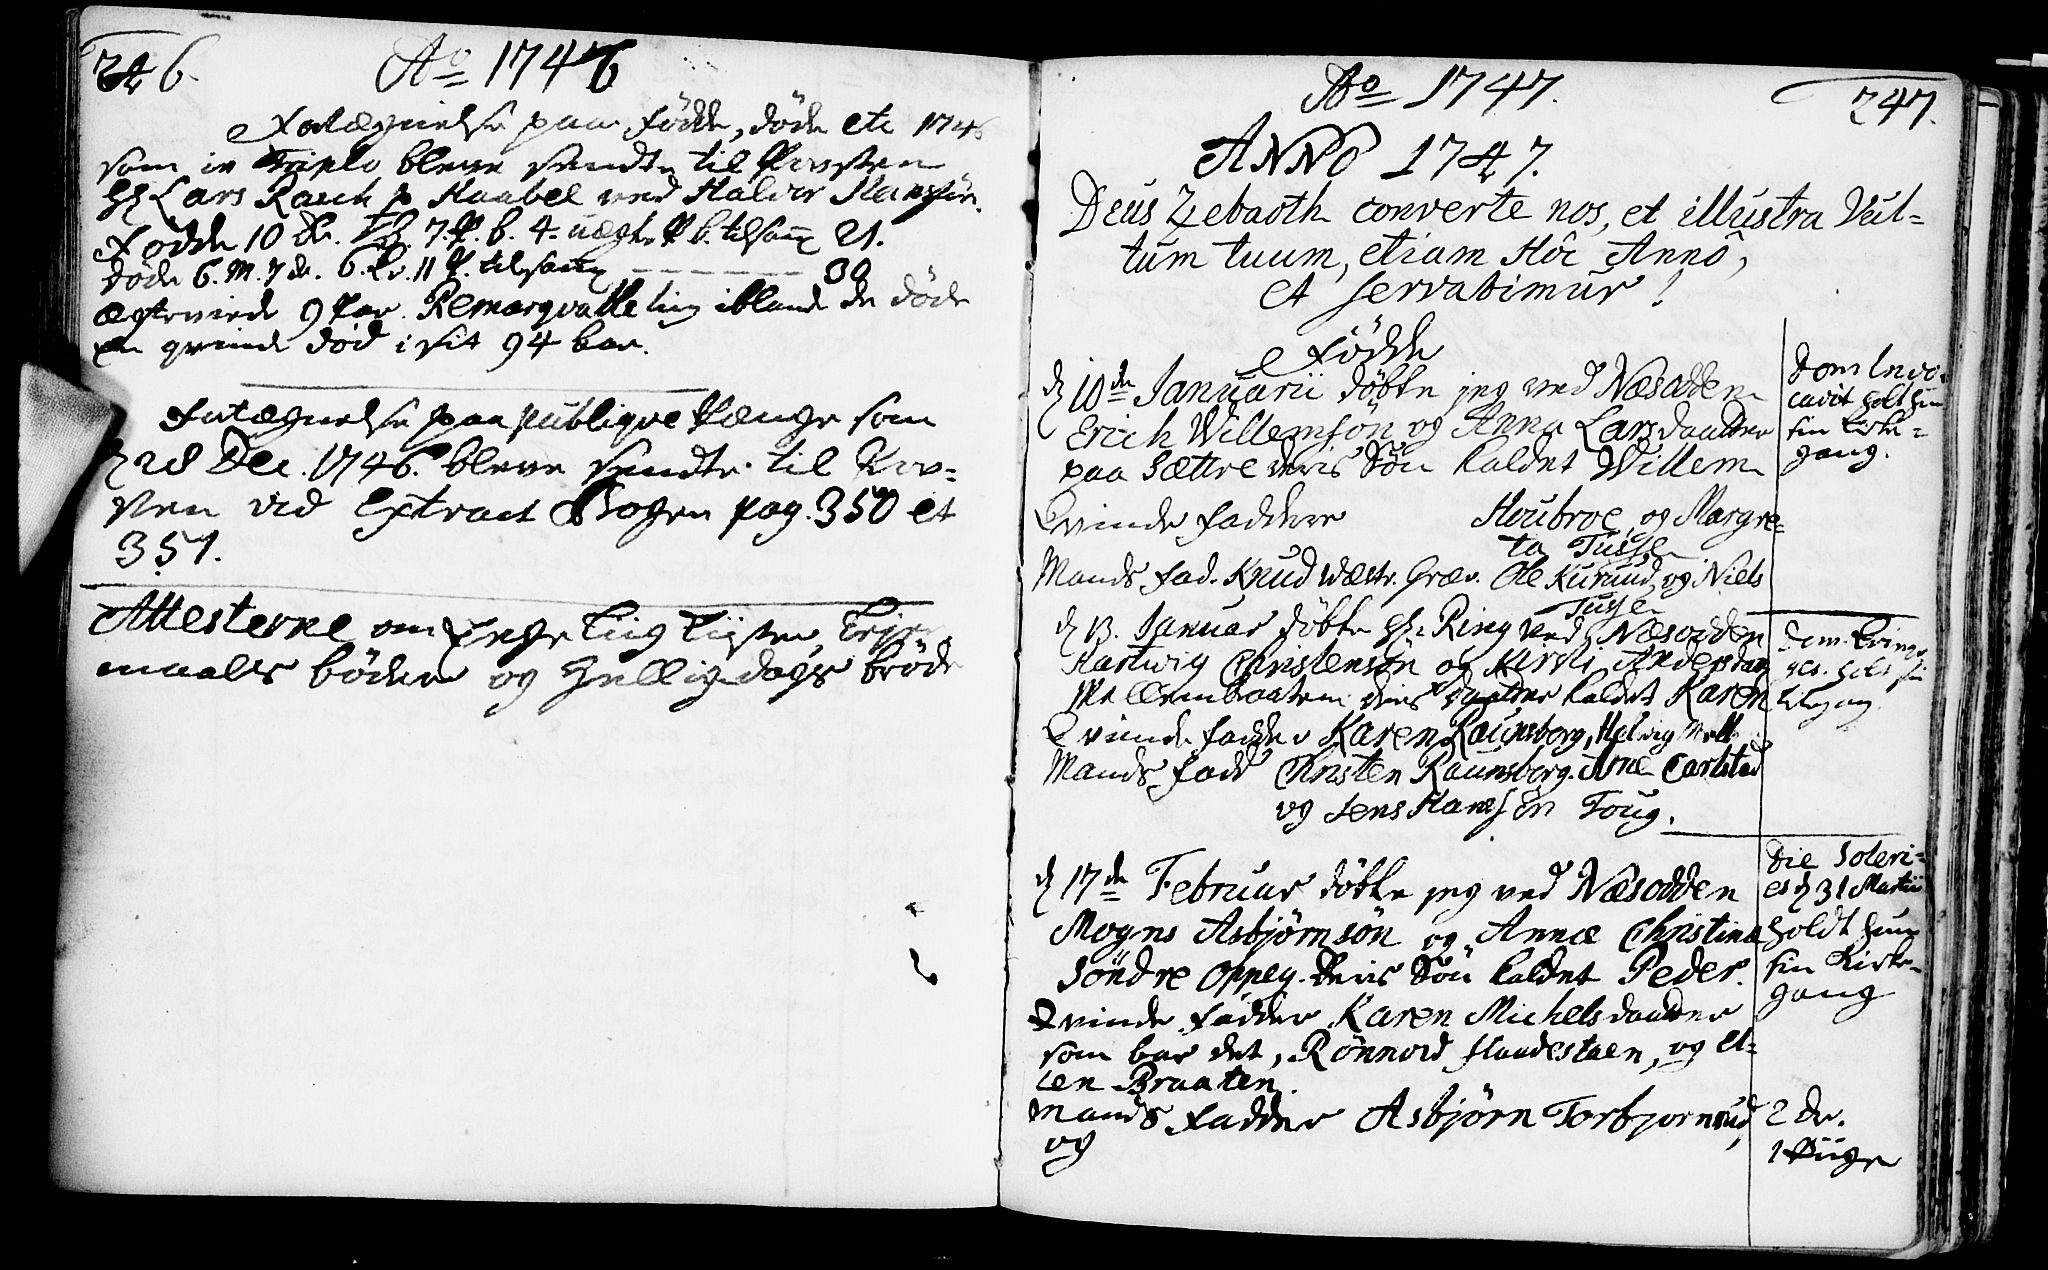 246.
Ao 1746
Fortægnelse paa Födde, döde etc 1746
som in Triplo bleve sendte til Provsten
Lars Rasch p Haabel ved Halvor Hansön.
Fødde 10 7. P. b. 4. uægte P. b. tilsam̄ 21.
Døde 6. M. 7 dr. 6. 11 P. tilsam̄ 30
ægteviede 9 Par. Remarqvable ting iblandt de döde
en qvinde död i sit 94 Aar.
Fortægnelse paa publiqve Penge som
d 28 Dec. 1746. bleve sendte til Prov-
sten vid Extract Bogen pag. 350 et
351.
Attesterne om
maals böder og Helligdags bröde
Ao 1747.
247.
ANNO 1747.
Deus Zebaoth converte nos, et illustra Vul-
tum tuum, etiam Hôc Annô,
et servabimur!
Födde
d 10de Januarii döbte jeg ved Næsodden
Erich Willemsön og Anna Larsdaatter
paa Sættre deris Sön kaldet Willem
Qvinde Faddere Houbroe, og Margre-
ta Tusse
Mands Fad. Knud Wæstr. Græv. Ole Kuruud, og Niels
Tusse
Dom Invo-
cavit holt hun
sin Kirke-
gang.
d 13. Januar döbte Hr. Ring ved Næsodden
Hartwig Christensön og Kirsti Andersdaat
Mellembraaten deris daatter kaldet Karen
Qvinde fadder Karen Raunsborg, Helvig Mell
Mands fadd Christen Raunsborg. Arne Carlstad
og Jens Hansön Toug.
Dom.
holt sin
kirkegang.
d 17de Februar döbte jeg ved Næsodden
Mogns Asbjørnsön og Annæ Christinæ
Söndre Oppeg. deris Sön kaldet Peder.
Qvinde fadder Karen Michelsdaatter
som bar det, Rönnvid Haudestaen, og El-
len Braaten.
Mands Fadder Asbjörn Torbjornrud,
og
Die Soleri-
es d 31 Martii
holdt hun
sin Kirke-
gang
2 Dr.
1 Piige